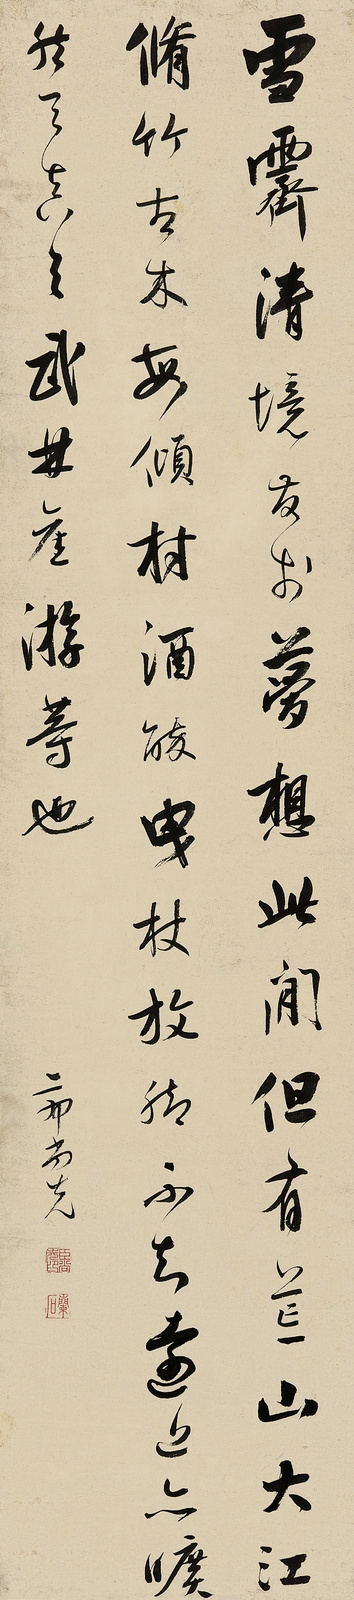 雪霽清境發於夢想此間但有荒山大江
脩竹古木每傾村酒醉曳杖放腳不知遠近亦曠
然天真与武林舊游等也